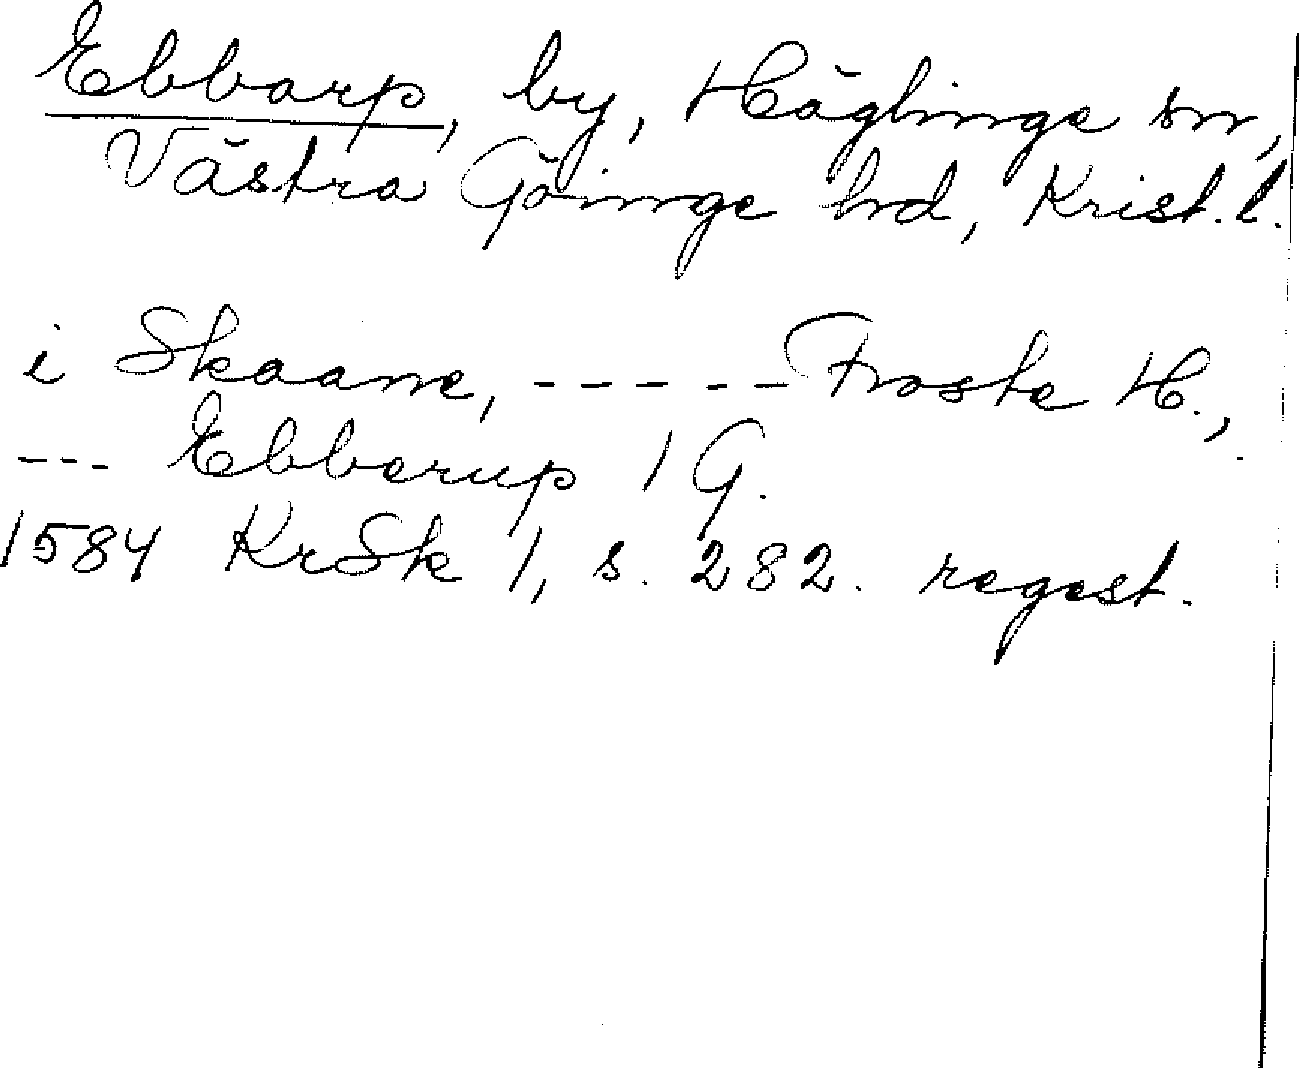 Ebbarp, by, Häglinge sn,
Västra Göinge hrd, Krist. l.
i Skaane, ----- Froste H.,
--- Ebberup 1 G.
1584 KrSk 1, s. 282. regest.